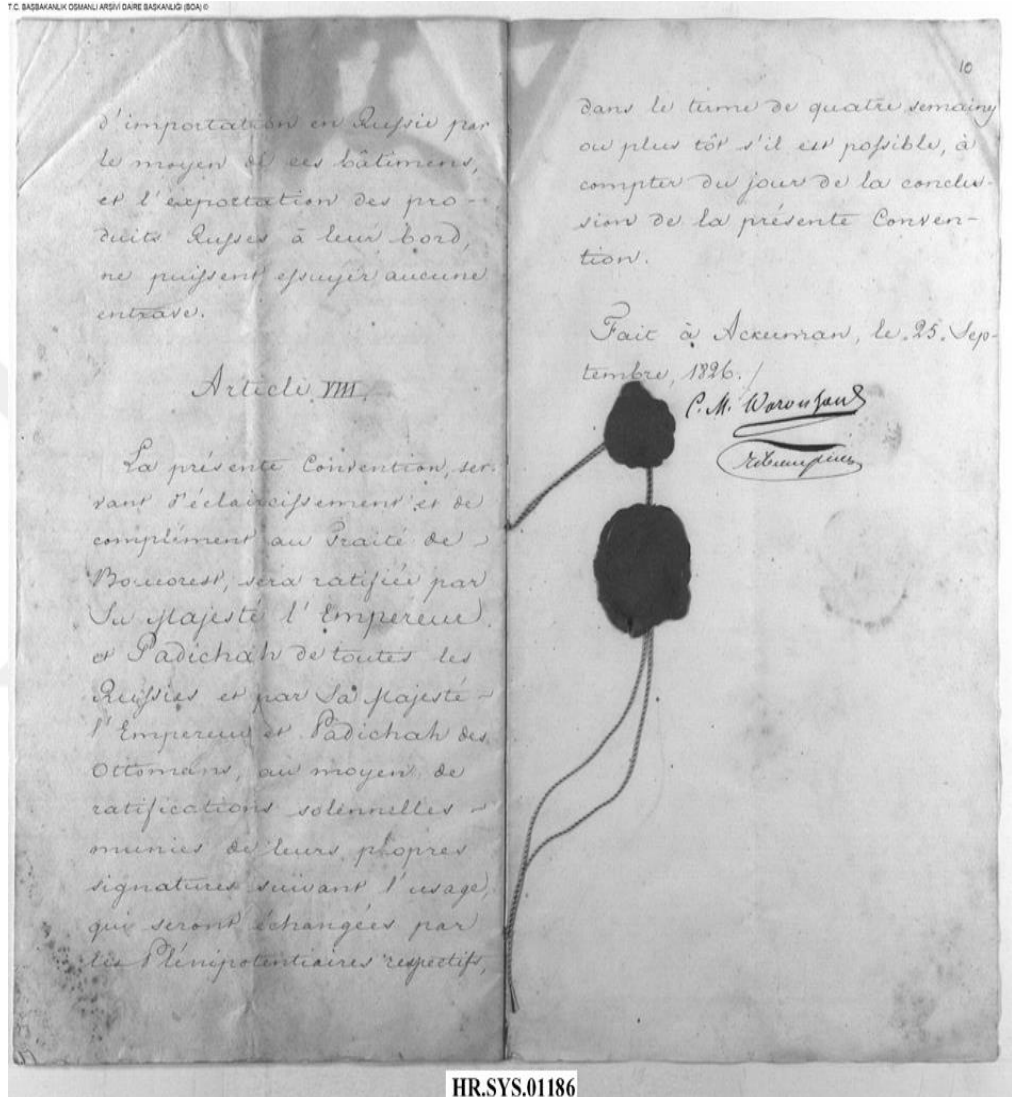 T.C. BAŞBAKANLIK OSMANLI ARŞİVİ DAİRE BAŞKANLIĞI (BOA) ©
d'importation en Russie par
le moyen de ces bâtimens,
et l'exportation des pro-
duits Russes à leur bord,
ne puissent essuyer aucune
entrave.
Article VIII.
La présente Convention, ser-
vant d'éclaircissement et de
complément au Traité de
Boucorest, sera ratifiée par
Sa Majesté l'Empereur
et Padichah de toutes les
Russies et par Sa Majesté
l'Empereur et Padichah des
Ottomans, au moyen de
ratifications solennelles
munies de leurs propres
signatures suivant l'usage,
qui seront échangées par
les Plénipotentiaires respectifs,
10
dans le terme de quatre semaines
ou plus tôt s'il est possible, à
compter du jour de la conclu-
sion de la présente Conven-
tion.
Fait à Ackerman, le 25. Sep-
tembre, 1826. /
C. M. Woronzow
Ribeaupierre
HR.SYS.01186